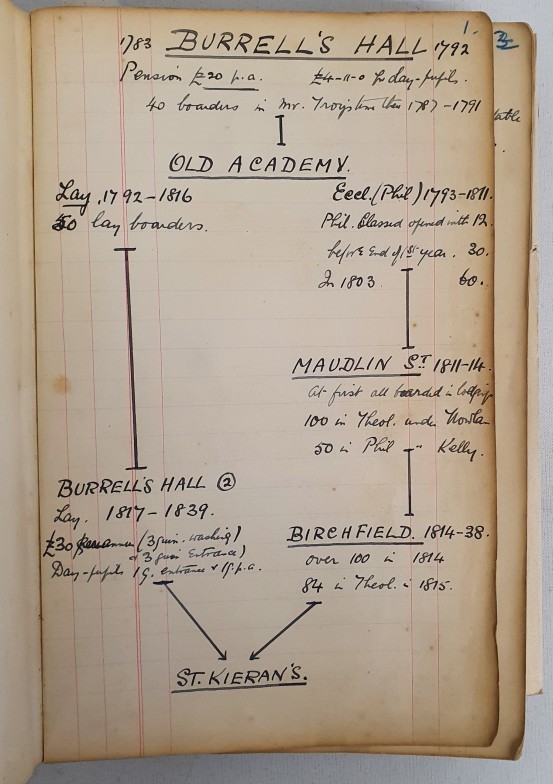 1.
1783 BURRELL'S HALL 1792
Pension £20 p.a. £4-11-0 for day-pupils.
40 boarders in Mr. time 1787-1791
OLD ACADEMY.
Lay, 1792-1816
50 lay boarders.
Eccl. (Phil) 1793-1811.
Phil. Classes opened with 12
before End of 1st year. 30.
In 1803 60.
MAUDLIN ST 1811-14.
At first all boarded in lodgings
100 in Theol. under Nowlan
50 in Phil - " - Kelly.
BURRELL'S HALL ②
Lay. 1817-1839.
£30 per annum (3 guin. washing)
& 3 guin Entrance)
Day-pupils 1 G. entrance & 1 G. p.a.
BIRCHFIELD. 1814-38.
over 100 in 1814
84 in Theol. in 1815.
ST. KIERAN'S.
3
table